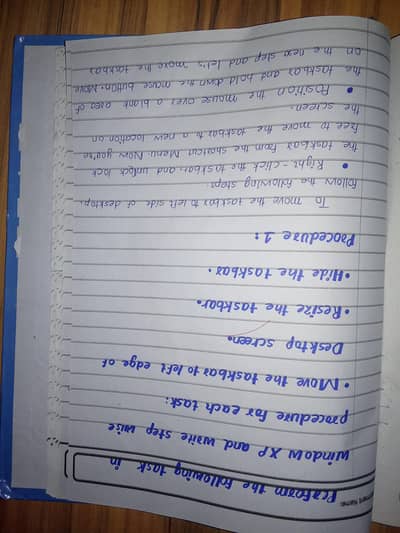 ment Name:
Perform the following task in
window XP and write step wise
procedure for each task:
• Move the taskbar to left edge of
Desktop screen.
• Resize the taskbar.
• Hide the taskbar.
Procedure 1:
To move the taskbar to left side of desktop,
follow the following step:
• Right-click the taskbar, and unlock lock
the taskbar from the shortcut Menu. Now you're
free to move the taskbar to a new location on
the screen.
• Position the mouse over a blank area of
the taskbar and hold down the mouse button. Move
on the new step and let's move the taskbar